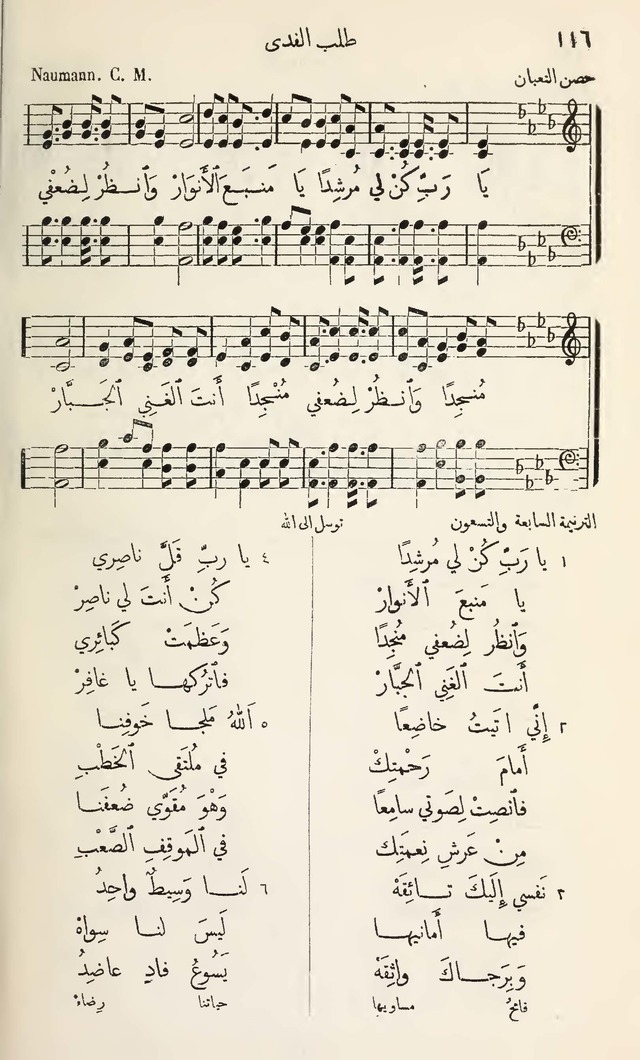 ١١٦ طلب الفدى
Naumann. C. M. حصن النعمان
يَا رَبِّ كُنْ لِي مُرشِدًا يَا مَنبَعَ ٱلْأَنوَارْ وَٱنظُرْ لِضُعْفِي
مُنْجِدًا وَٱنظُرْ لِضُعفِي مُنْجِدًا أَنتَ ٱلغَنِي ٱلجَبَّارْ
الترنيمة السابعة والتسعون توسل الى الله
١ يا رَبِّ كُنْ لي مُرشِدًا
يا مَنبَعَ ٱلأَنوارْ
وَٱنظُر لِضُعفي مُنجِدًا
أَنتَ ٱلغَنِي ٱلجبَّارْ
٢ إِنّي اتَيتُ خاضِعًا
أَمامَ رَحْمتِكْ
فٱنصِتْ لِصَوتي سامِعًا
مِنْ عَرشِ نِعمَتِك
٣ نَفسي إِلَيكَ تائِقَهْ
فيها أَمانيها
وَبِرَجاكَ واثِقَهْ
فاتحُ مساويها
٤ يا ربِّ قَلَّ ناصِري
كُنْ أَنتَ لي ناصِرْ
وَعَظمَتْ كَبائِري
فٱترُكها يا غافِرْ
٥ اَللهُ مَلجا خَوفِنا
في مُلتَقى ٱلخَطْبِ
وَهْوَ مُقَوّي ضُعفَنا
في ٱلمَوقِفِ ٱلصَّعْبِ
٦ لَنا وَسِيطٌ واحِدُ
لَيسَ لنا سِواهْ
يَسُوعُ فادٍ عاضِدُ
حياتنا رِضاءْ